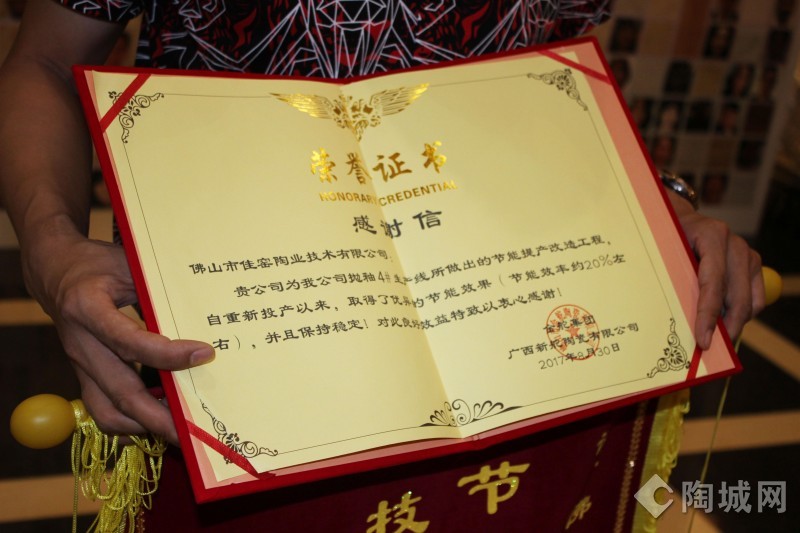 荣誉证书
HONORARY CREDENTIAL
感谢信
佛山市佳窑陶业技术有限公司:
贵公司为我公司抛釉4#生产线所做出的节能提产改造工程,
自重新投产以来,取得了very的节能效果(节能效率约20%左
右),并且保持稳定!对此良好效益特致以表心感谢!
集团
广西新舵陶瓷有限公司
2017年8月30日
技节
佛
陶城网